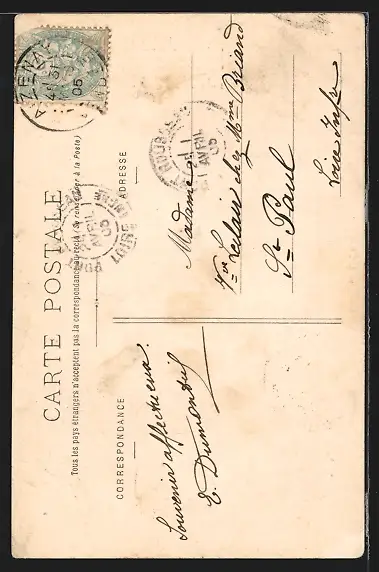 CARTE POSTALE
Tous les pays étrangers n'acceptent pas la correspondance au recto (Se renseigner à la Poste)
CORRESPONDANCE
ADRESSE
Souvenir affectueux.
E. Dumontif
Madame
Vve Leclair chez Mme Briand
St Paul
Loire Infre
AVRIL
05
LOIRE